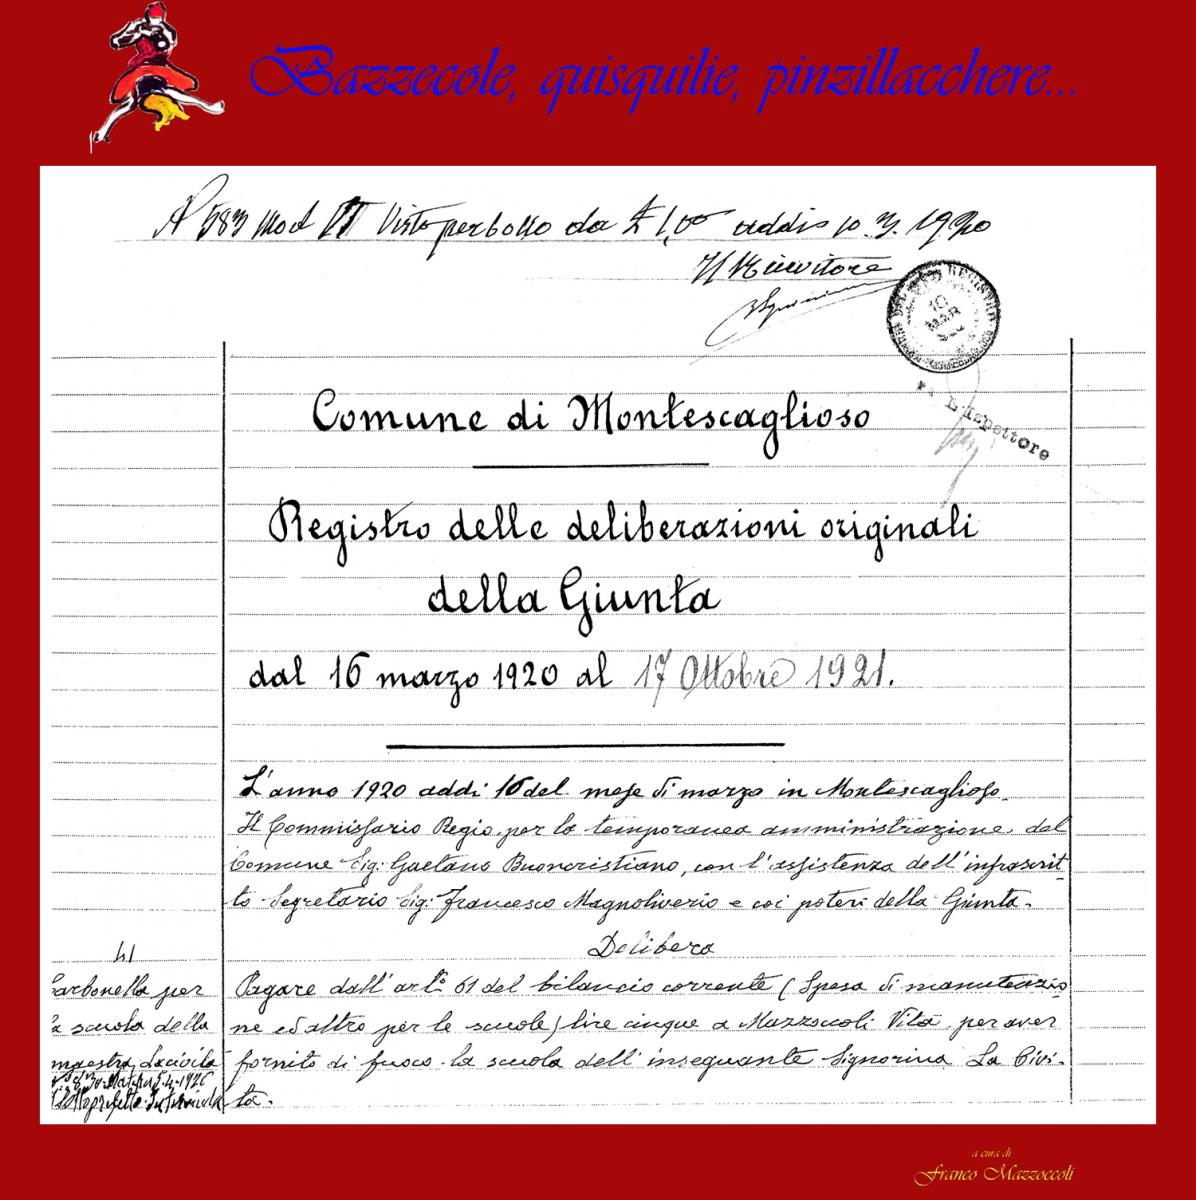 Bazzecole, quisquilie, pinzillacchere...
N 583 Mod II Visto per bollo da £ 1,00 addì 10.3.1920
Il Ricevitore
10
MAR
L'Ispettore
Comune di Montescaglioso
Registro delle deliberazioni originali
della Giunta
dal 16 marzo 1920 al 17 Ottobre 1921.
L'anno 1920 addì 16 del mese di marzo in Montescaglioso.
Il Commissario Regio, per la temporanea amministrazione del
Comune Sig: Gaetano Buoncristiano, con l'assistenza dell'infrascrit-
to Segretario Sig: Francesco Magnoliverio e coi poteri della Giunta.
Delibera
41
Carbonella per
la scuola della
maestra Lacivita
Pagare dall'art.º 61 del bilancio corrente (Spesa di manutenzio-
ne ed altro per le scuole) lire cinque a Mazzoccoli Vita per aver
fornito di fuoco la scuola dell'insegnante Signorina La Civi-
ta.
a cura di
Franco Mazzoccoli